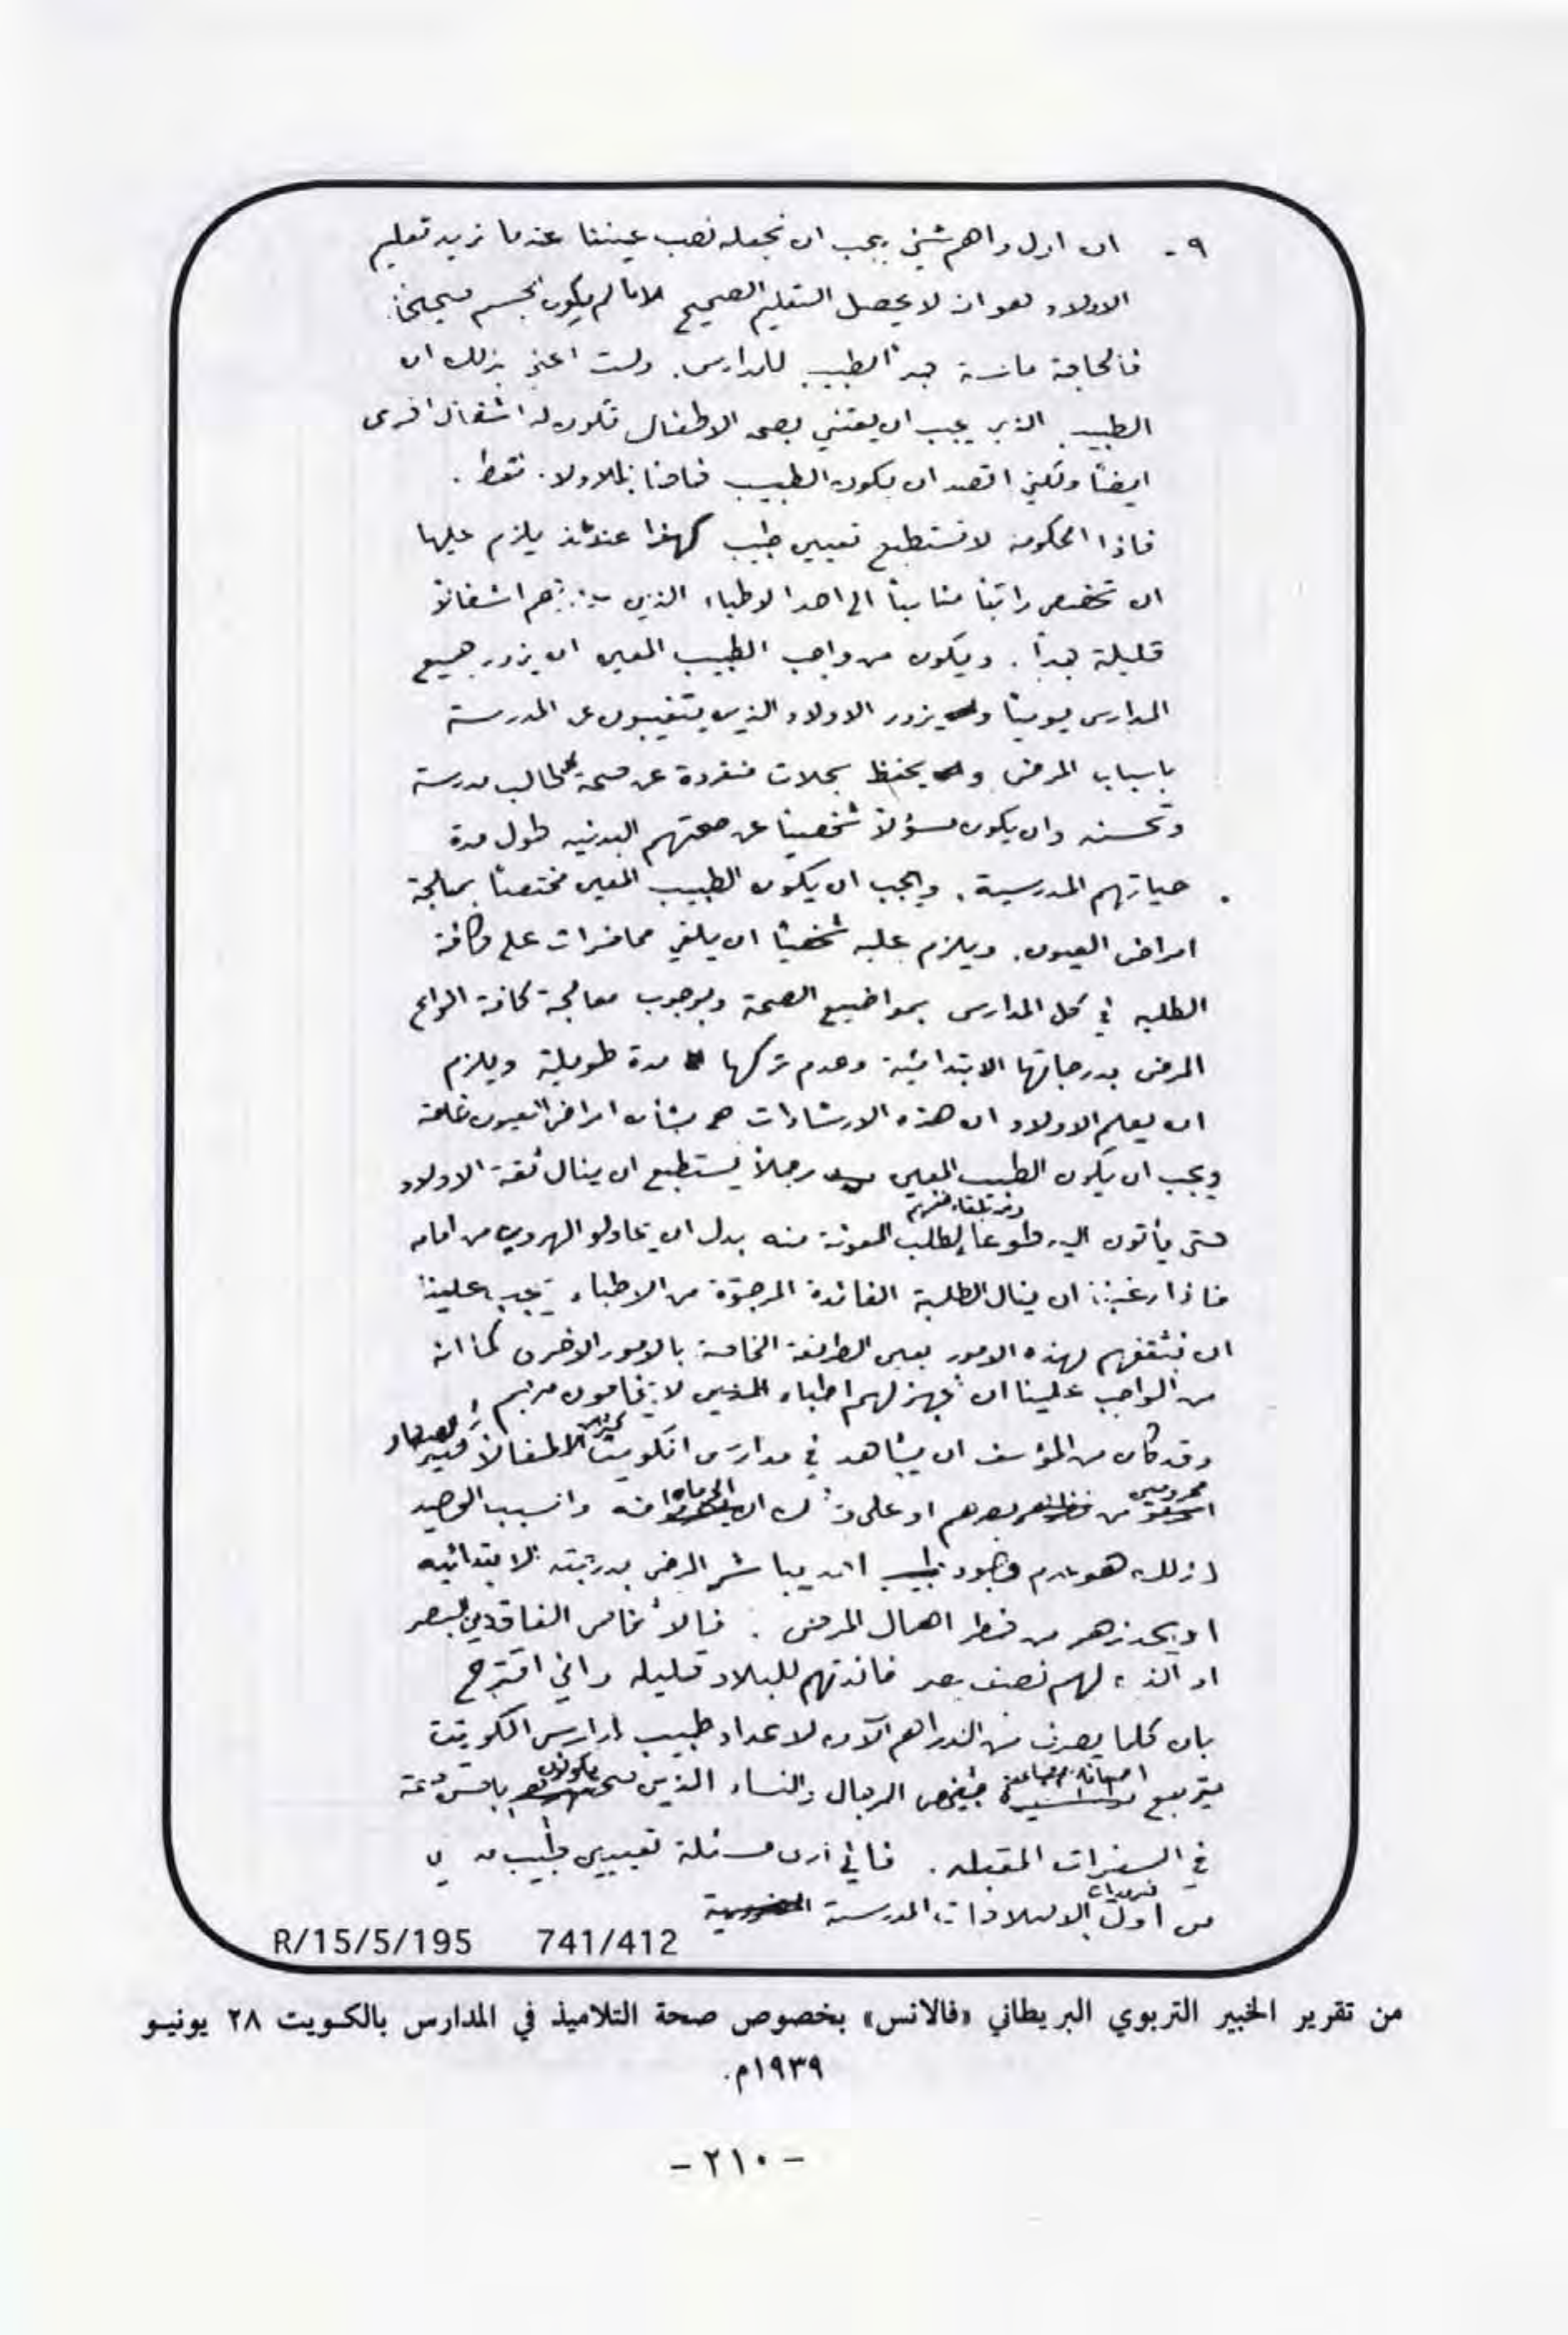 ٩ - ان اول واهم شيئ يجب ان نجعله نصب عيننا عندما نريد تعليم
الاولاد هو ان لا يحصل التعليم الصحيح الا ما لم يكون الجسم صحيحاً.
فالحاجة ماسة جداً لطبيب للمدارس. ولست اعني بذلك ان
الطبيب الذي يجب ان يعتني بصحة الاطفال تكون له اشغال اخرى
ايضاً ولكني اقصد ان يكون الطبيب خاصاً بالاولاد فقط.
فاذا الحكومة لا تستطيع تعيين طبيب كهذا عندئذ يلزم عليها
ان تخصص راتباً مناسباً الى احد الاطباء الذين اشغالاً
قليلة جداً. ويكون من واجب الطبيب المعين ان يزور جميع
المدارس يومياً و يزور الاولاد الذين يتغيبون عن المدرسة
باسباب المرض و يحتفظ بسجلات منفردة عن صحة كل طالب مدرسة
وتحسنه وان يكون مسؤلاً شخصياً عن صحتهم البدنيه طول مدة
حياتهم المدرسية. ويجب ان يكون الطبيب المعين مختصاً بمعالجة
امراض العيون. ويلزم عليه شخصياً ان يلقي محاضرات على كافة
الطلبه في كل المدارس بمواضيع الصحة وبوجوب معالجة كافة انواع
المرض بدرجاتها الابتدائية وعدم تركها مدة طويلة ويلزم
ان يعلم الاولاد ان هذه الارشادات بشأن امراض العيون خاصة
ويجب ان يكون الطبيب المعين رجلاً يستطيع ان ينال ثقة الاولاد
حتى يأتون اليه طوعاً لطلب المعونة منه بدل ان يحاولو الهروب من امامه
فاذا رغبنا ان ينال الطلبة الفائدة المرجوة من الاطباء يجب علينا
ان نثقفهم لهذه الامور بعين الطريقة الخاصة بالامور الاخرى كما انه
من الواجب علينا ان نجهز لهم اطباء الذين لا يخافون منهم
وقد كان من المؤسف ان يشاهد في مدارس الكويت اطفالاً
محرومين من بصرهم او على وشك ان وانسبب الوحيد
لذلك هو عدم وجود طبيب يباشر المرض بدرجته الابتدائيه
او يحذرهم من خطر اهمال المرض. فالأشخاص الفاقدين البصر
او الذي لهم نصف بصر فائدتهم للبلاد قليله واني اقترح
بان كلما يصرف من الدراهم الآن لاعداد طبيب لمدارس الكويت
اضعافاً مضاعفة الرجال والنساء الذين
في السفرات المقبله. فاني ارى مسئلة تعيين طبيب
من اول ضروريات المدرسة
R/15/5/195 741/412
من تقرير الخبير التربوي البريطاني «فالانس» بخصوص صحة التلاميذ في المدارس بالكويت ٢٨ يونيو
١٩٣٩م.
- ٢١٠ -